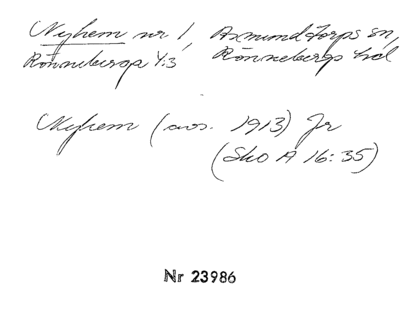 Nyhem nr 1, Asmundtorps sn,
Rönneberga 4:3 Rönnebergs hd
Nyhem (avs. 1913) Jr
(Sko A 16:35)
Nr 23986